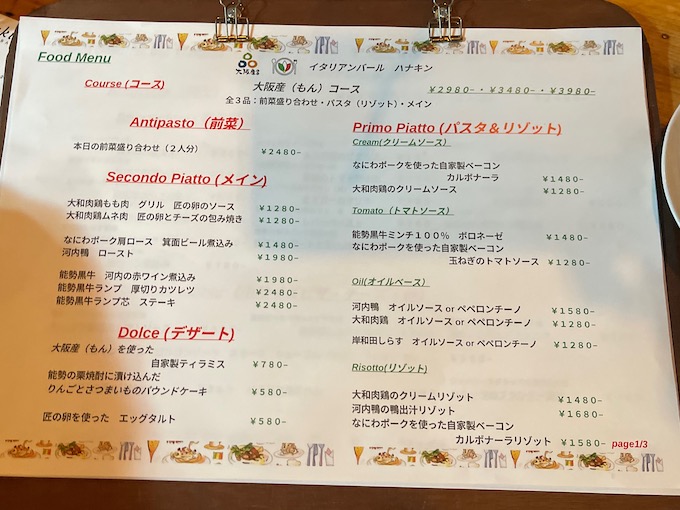 Food Menu
大阪産
イタリアンバール　ハナキン
Course (コース)
大阪産（もん）コース　¥2980-・¥3480-・¥3980-
全３品：前菜盛り合わせ・パスタ（リゾット）・メイン
Antipasto（前菜）
本日の前菜盛り合わせ（２人分）　¥2480-
Secondo Piatto (メイン)
大和肉鶏もも肉　グリル　匠の卵のソース　¥1280-
大和肉鶏ムネ肉　匠の卵とチーズの包み焼き　¥1280-
なにわポーク肩ロース　箕面ビール煮込み　¥1480-
河内鴨　ロースト　¥1980-
能勢黒牛　河内の赤ワイン煮込み　¥1980-
能勢黒牛ランプ　厚切りカツレツ　¥2480-
能勢黒牛ランプ芯　ステーキ　¥2480-
Dolce (デザート)
大阪産（もん）を使った
自家製ティラミス　¥780-
能勢の栗焼酎に漬け込んだ
りんごとさつまいものパウンドケーキ　¥580-
匠の卵を使った　エッグタルト　¥580-
Primo Piatto (パスタ＆リゾット)
Cream(クリームソース)
なにわポークを使った自家製ベーコン
カルボナーラ　¥1480-
大和肉鶏のクリームソース　¥1280-
Tomato（トマトソース）
能勢黒牛ミンチ１００％　ボロネーゼ　¥1480-
なにわポークを使った自家製ベーコン
玉ねぎのトマトソース　¥1280-
Oil(オイルベース）
河内鴨　オイルソース or ペペロンチーノ　¥1580-
大和肉鶏　オイルソース or ペペロンチーノ　¥1280-
岸和田しらす　オイルソース or ペペロンチーノ　¥1280-
Risotto(リゾット)
大和肉鶏のクリームリゾット　¥1480-
河内鴨の鴨出汁リゾット　¥1680-
なにわポークを使った自家製ベーコン
カルボナーラリゾット　¥1580-
page1/3